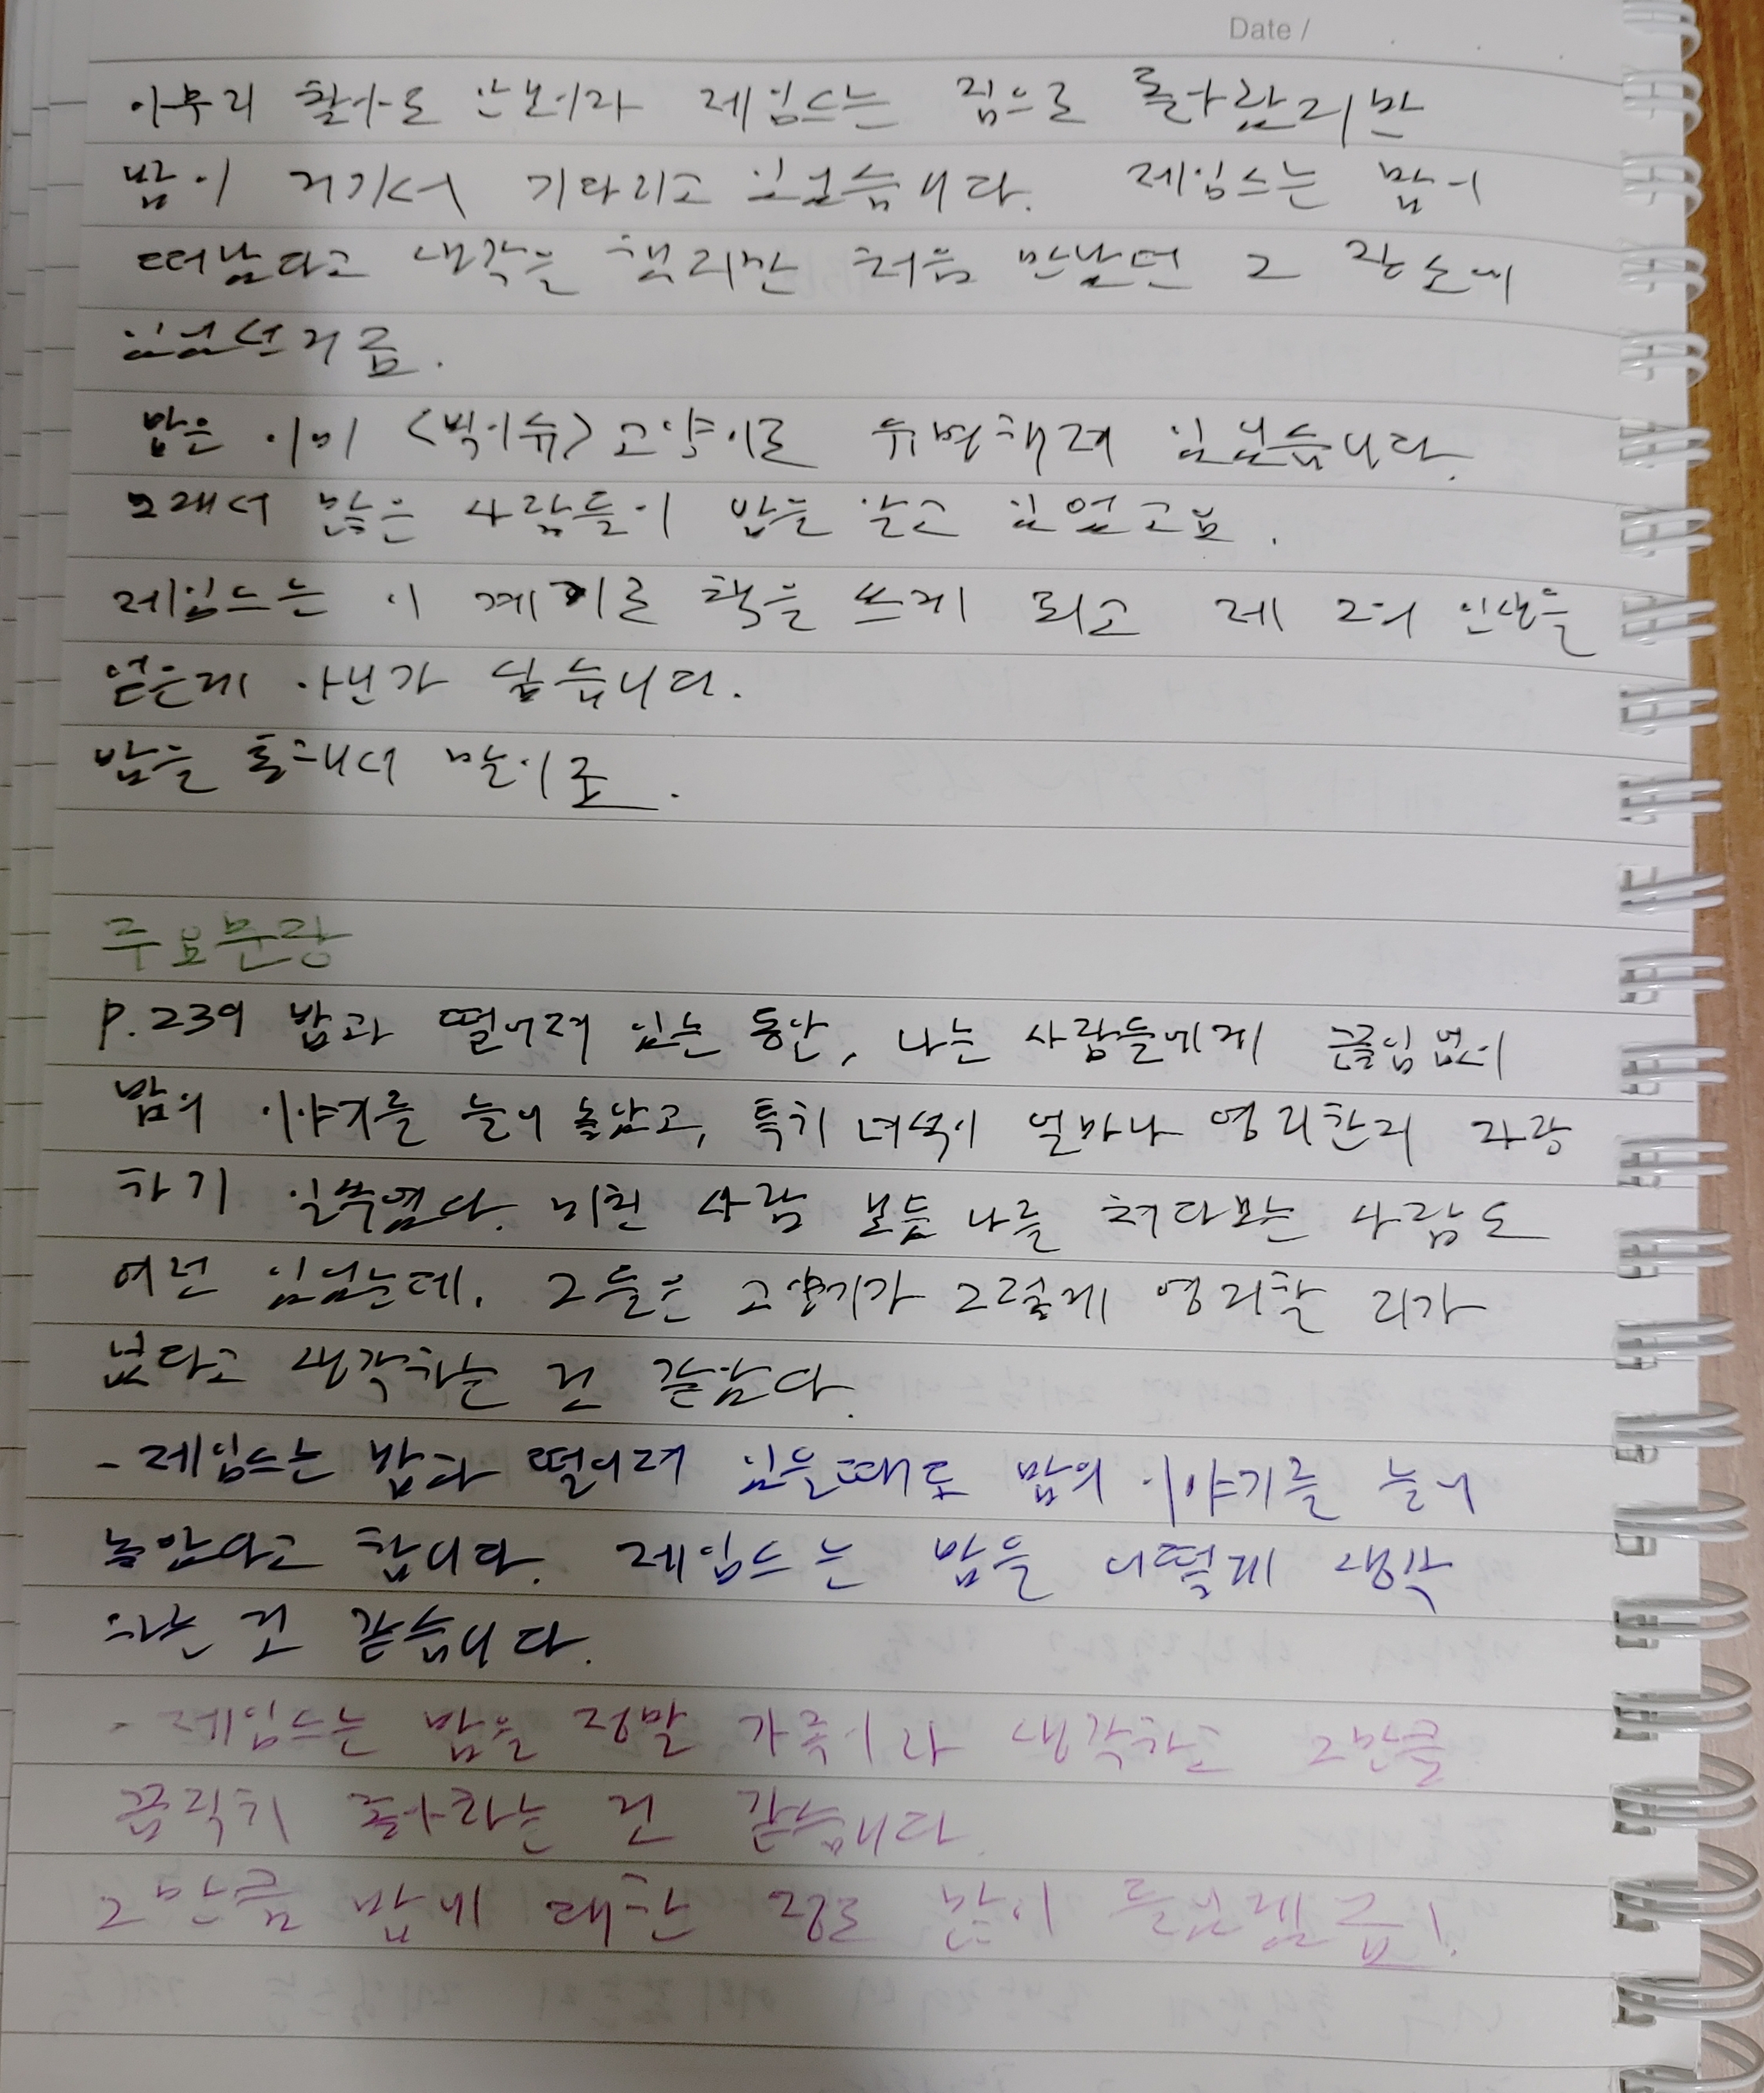 Date /
아무리 찾아도 안보이자 제임스는 집으로 돌아왔지만
밥이 거기서 기다리고 있었습니다. 제임스는 밥이
떠났다고 생각을 했지만 처음 만났던 그 장소에
있었던거죠.
밥은 이미 <빅이슈> 고양이로 유명해져 있었습니다.
그래서 많은 사람들이 밥을 알고 있었고요.
제임스는 이 계기로 책을 쓰게 되고 제 2의 인생을
얻은게 아닌가 싶습니다.
밥을 통해서 말이죠.
주요문장
P.239 밥과 떨어져 있는 동안, 나는 사람들에게 끊임없이
밥의 이야기를 늘어 놓았고, 특히 녀석이 얼마나 영리한지 자랑
하기 일쑤였다. 미친 사람 보듯 나를 쳐다보는 사람도
여럿 있었는데, 그들은 고양이가 그렇게 영리할 리가
없다고 생각하는 것 같았다.
- 제임스는 밥과 떨어져 있을때도 밥의 이야기를 늘어
놓았다고 합니다. 제임스는 밥을 어떻게 생각
하는 것 같습니다.
- 제임스는 밥을 정말 가족이라 생각하고 그만큼
끔찍히 좋아하는 것 같습니다.
그만큼 밥에 대한 정도 많이 들었겠죠!